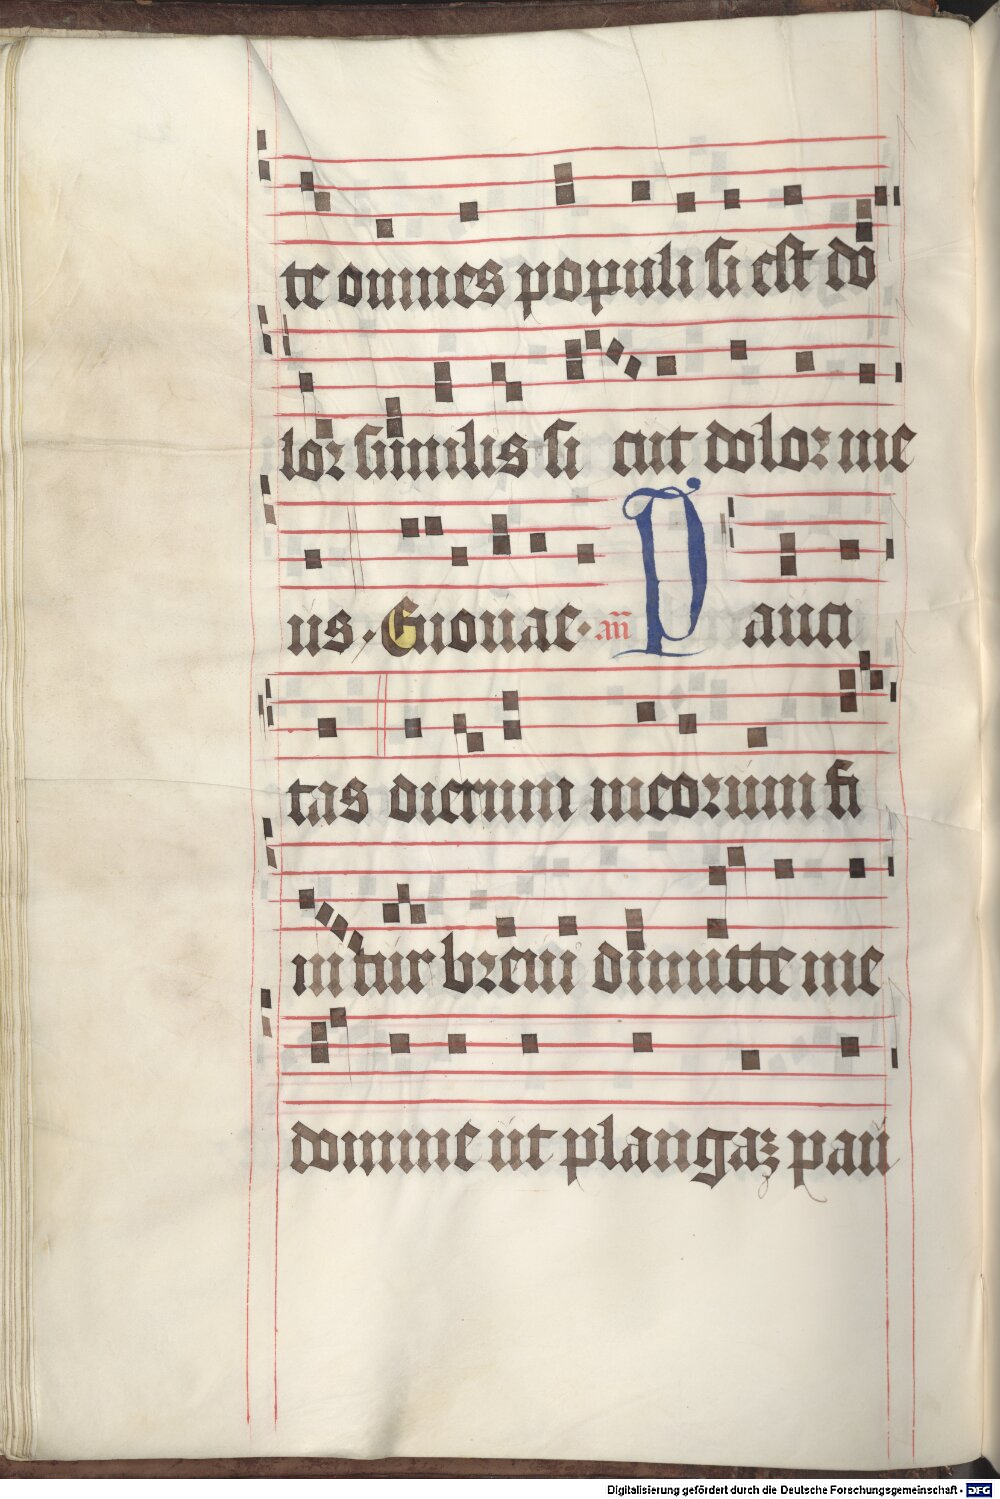 te omnes populi si est do
lor similis si cut dolor me
us. Euouae. an̅ P auci
tas dierum meorum fi
nitur breui dimitte me
domine ut plangaꝫ pau
Digitalisierung gefördert durch die Deutsche Forschungsgemeinschaft - DFG